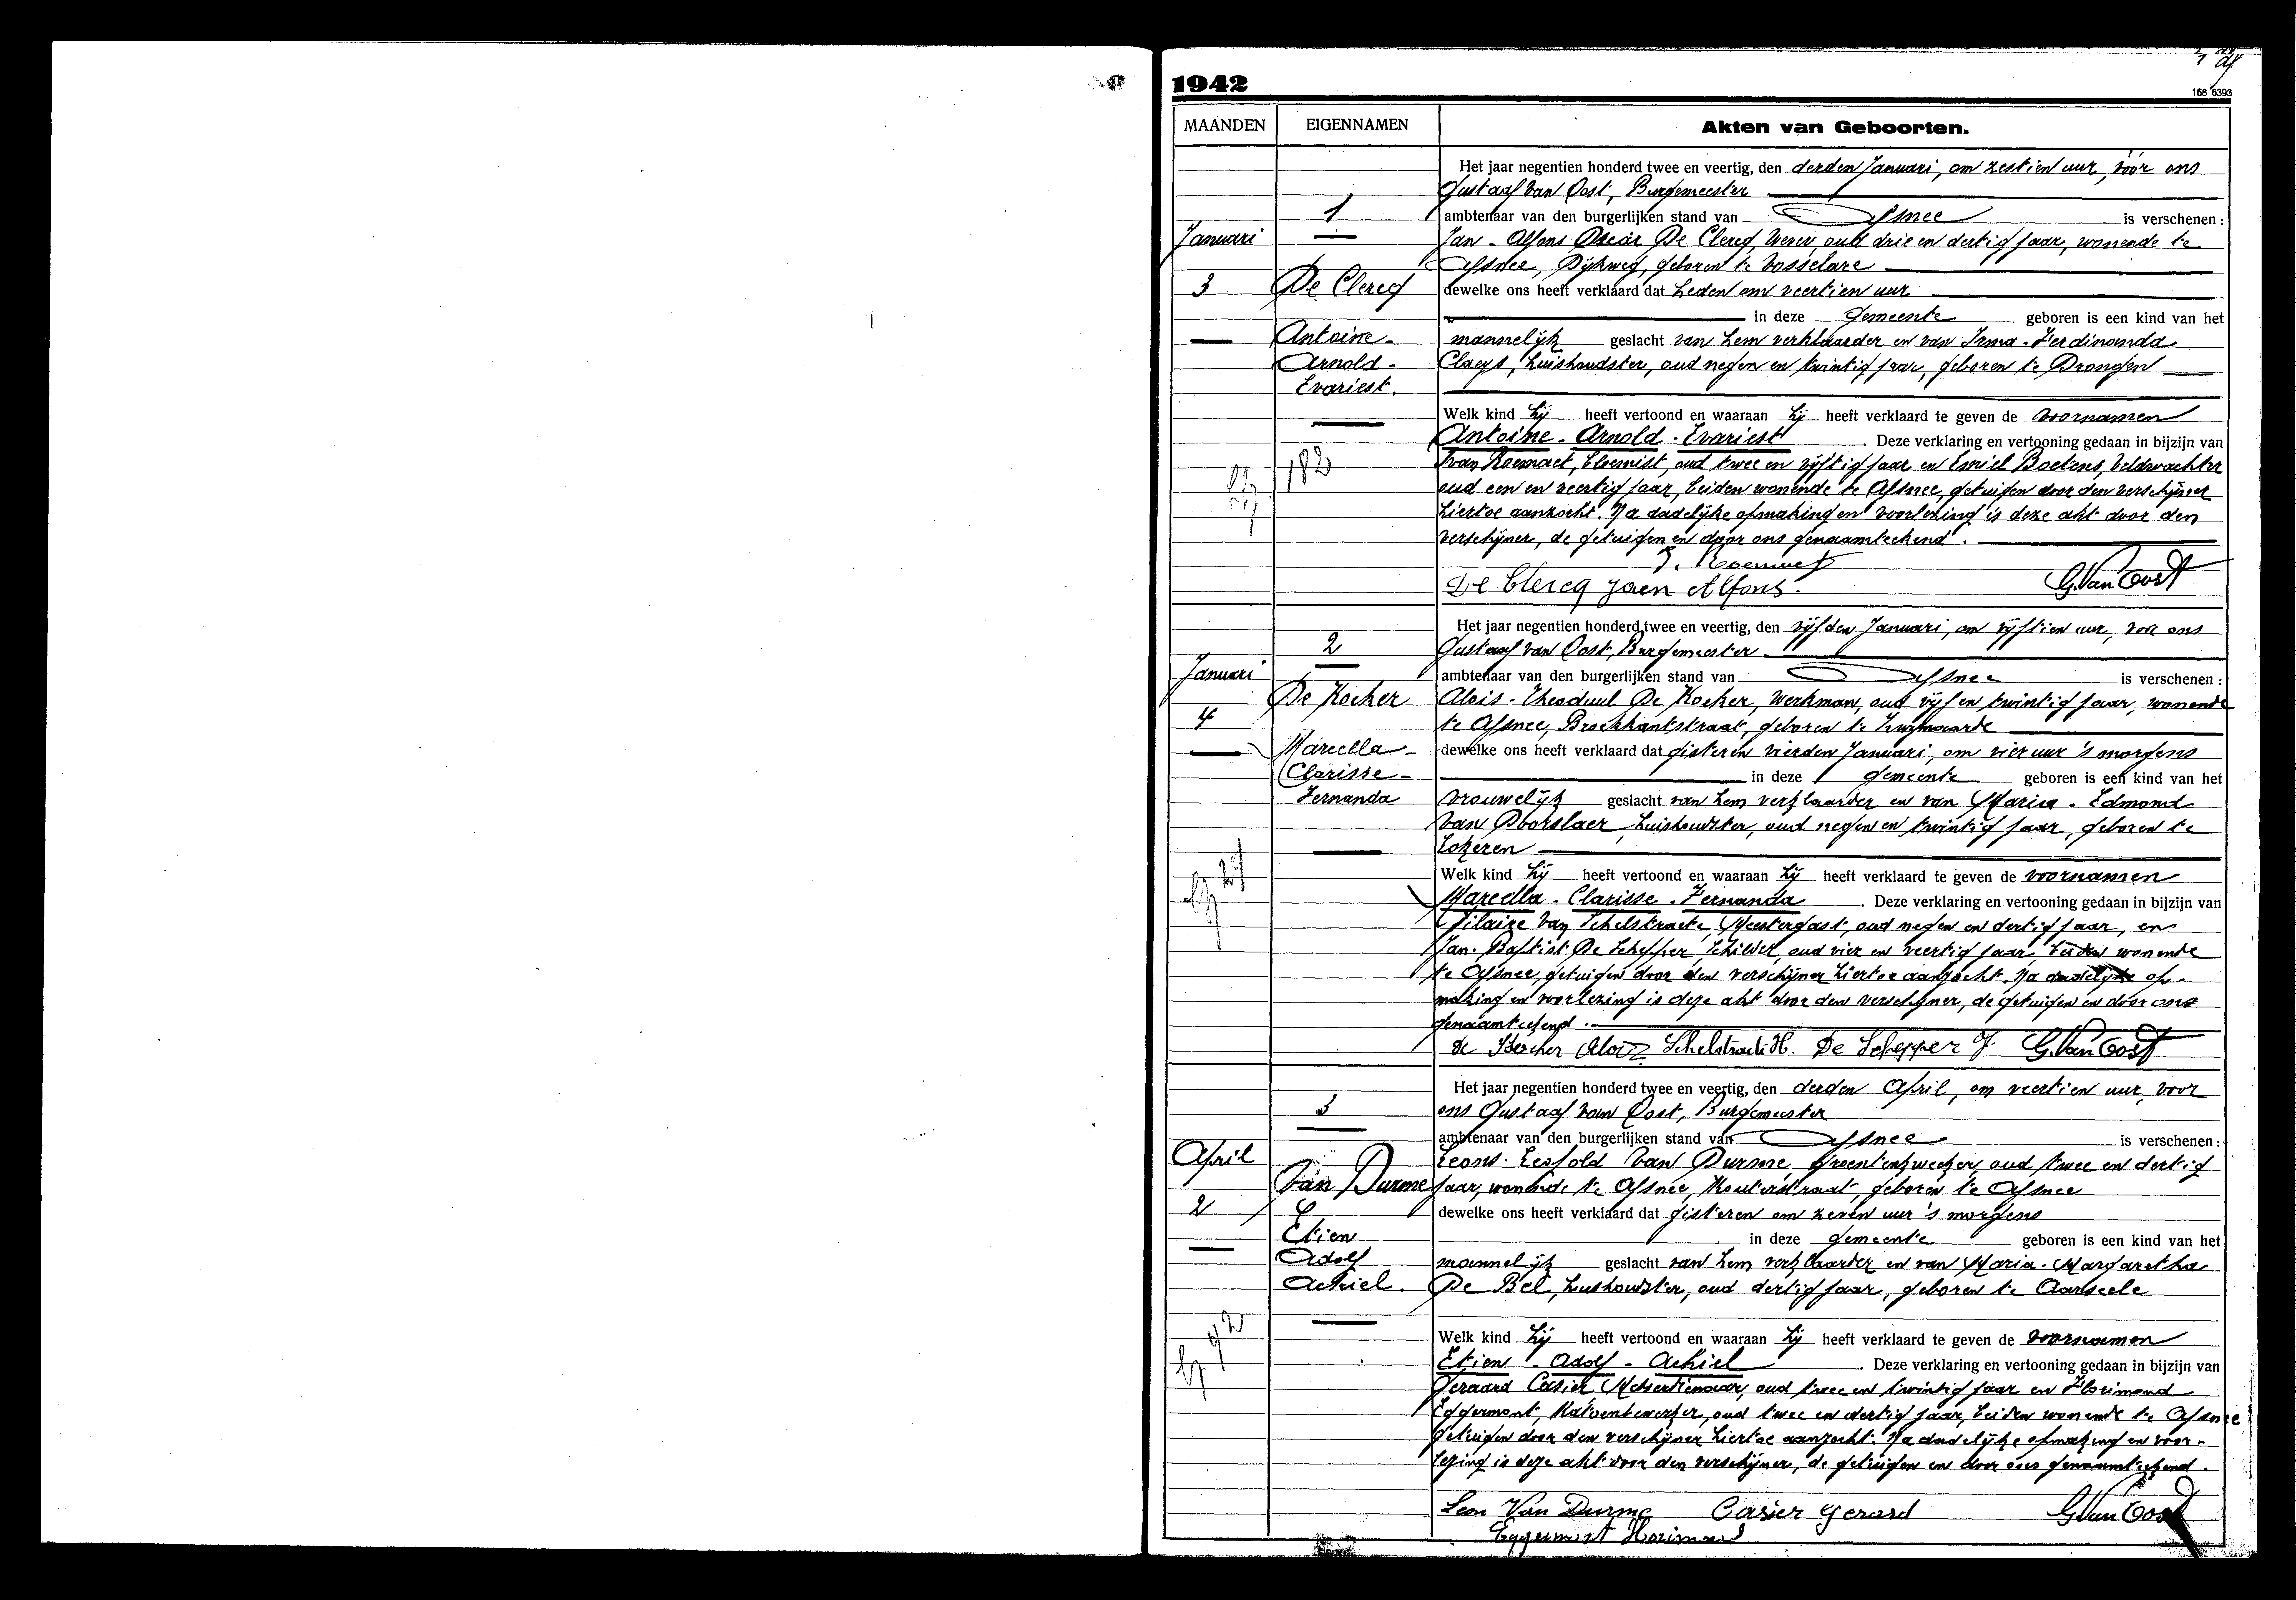 1942
168 6393
MAANDEN
EIGENNAMEN
Akten van Geboorten.
Januari
3
1
De Clercq
Antoine-
Arnold-
Evariest.
182
Het jaar negentien honderd twee en veertig, den derden Januari, om zestien uur, vóór ons
Gustaaf Van Oost, Burgemeester
ambtenaar van den burgerlijken stand van Afsnee is verschenen :
Jan-Alfons Oscar De Clercq, Wever, oud drie en dertig jaar, wonende te
Afsnee, Dijkweg, geboren te Vosselare
dewelke ons heeft verklaard dat heden om veertien uur
in deze gemeente geboren is een kind van het
mannelijk geslacht van hem verklaarder en van Irma-Ferdinanda
Claeys, huishoudster, oud negen en twintig jaar, geboren te Drongen
Welk kind hij heeft vertoond en waaraan hij heeft verklaard te geven de voornamen
Antoine-Arnold-Evariest. Deze verklaring en vertooning gedaan in bijzijn van
Ivan Roemaet, bloemist, oud twee en vijftig jaar en Emiel Boetens, Veldwachter
oud een en veertig jaar, beiden wonende te Afsnee, getuigen door den verschijner
hiertoe aanzocht. Na dadelijke opmaking en voorlezing is deze akt door den
verschijner, de getuigen en door ons genaamteekend.
De Clercq Jaen Alfons.
G. Van Oost
Januari
4
2
De Kocker
Marcella-
Clarisse-
Fernanda
Het jaar negentien honderd twee en veertig, den vijfden Januari, om vijftien uur, vóór ons
Gustaaf Van Oost, Burgemeester
ambtenaar van den burgerlijken stand van Afsnee is verschenen :
Alois-Theoduul De Kocker, Werkman, oud vijf en twintig jaar, wonende
te Afsnee, Broekkantstraat, geboren te Zwijnaarde
dewelke ons heeft verklaard dat gisteren vierden Januari, om vier uur 's morgens
in deze gemeente geboren is een kind van het
vrouwelijk geslacht van hem verklaarder en van Maria-Edmond
Van Doorslaer, huishoudster, oud negen en twintig jaar, geboren te
Lokeren
Welk kind hij heeft vertoond en waaraan hij heeft verklaard te geven de voornamen
Marcella-Clarisse-Fernanda. Deze verklaring en vertooning gedaan in bijzijn van
Hilaire Van Schelstraete, Meestergast, oud negen en dertig jaar, en
Jan-Baptist De Schepper, Schilder, oud vier en veertig jaar, beiden wonende
te Afsnee, getuigen door den verschijner hiertoe aanzocht. Na dadelijke op-
making en voorlezing is deze akt door den verschijner, de getuigen en door ons
genaamteekend.
De Kocker Aloiz Schelstraete H. De Schepper J. G. Van Oost
April
2
3
Van Durme
Etien
Adolf
Achiel.
Het jaar negentien honderd twee en veertig, den derden April, om veertien uur, voor
ons Gustaaf Van Oost, Burgemeester
ambtenaar van den burgerlijken stand van Afsnee is verschenen :
Leons-Leopold Van Durme, groentenkweeker, oud twee en dertig
jaar, wonende te Afsnee, Kouterstraat, geboren te Afsnee
dewelke ons heeft verklaard dat gisteren om zeven uur 's morgens
in deze gemeente geboren is een kind van het
mannelijk geslacht van hem verklaarder en van Maria-Margaretha
De Bel, huishoudster, oud dertig jaar, geboren te Aarseele
Welk kind hij heeft vertoond en waaraan hij heeft verklaard te geven de voornamen
Etien-Adolf-Achiel. Deze verklaring en vertooning gedaan in bijzijn van
Geraard Casier, Metserdienaar, oud twee en twintig jaar en Florimond
Eggermont, Katoenbewerker, oud twee en dertig jaar, beiden wonende te Afsnee
getuigen door den verschijner hiertoe aanzocht. Na dadelijke opmaking en voor-
lezing is deze akt door den verschijner, de getuigen en door ons genaamteekend.
Leon Van Durme Casier Gerard G. Van Oost
Eggermont Florimond